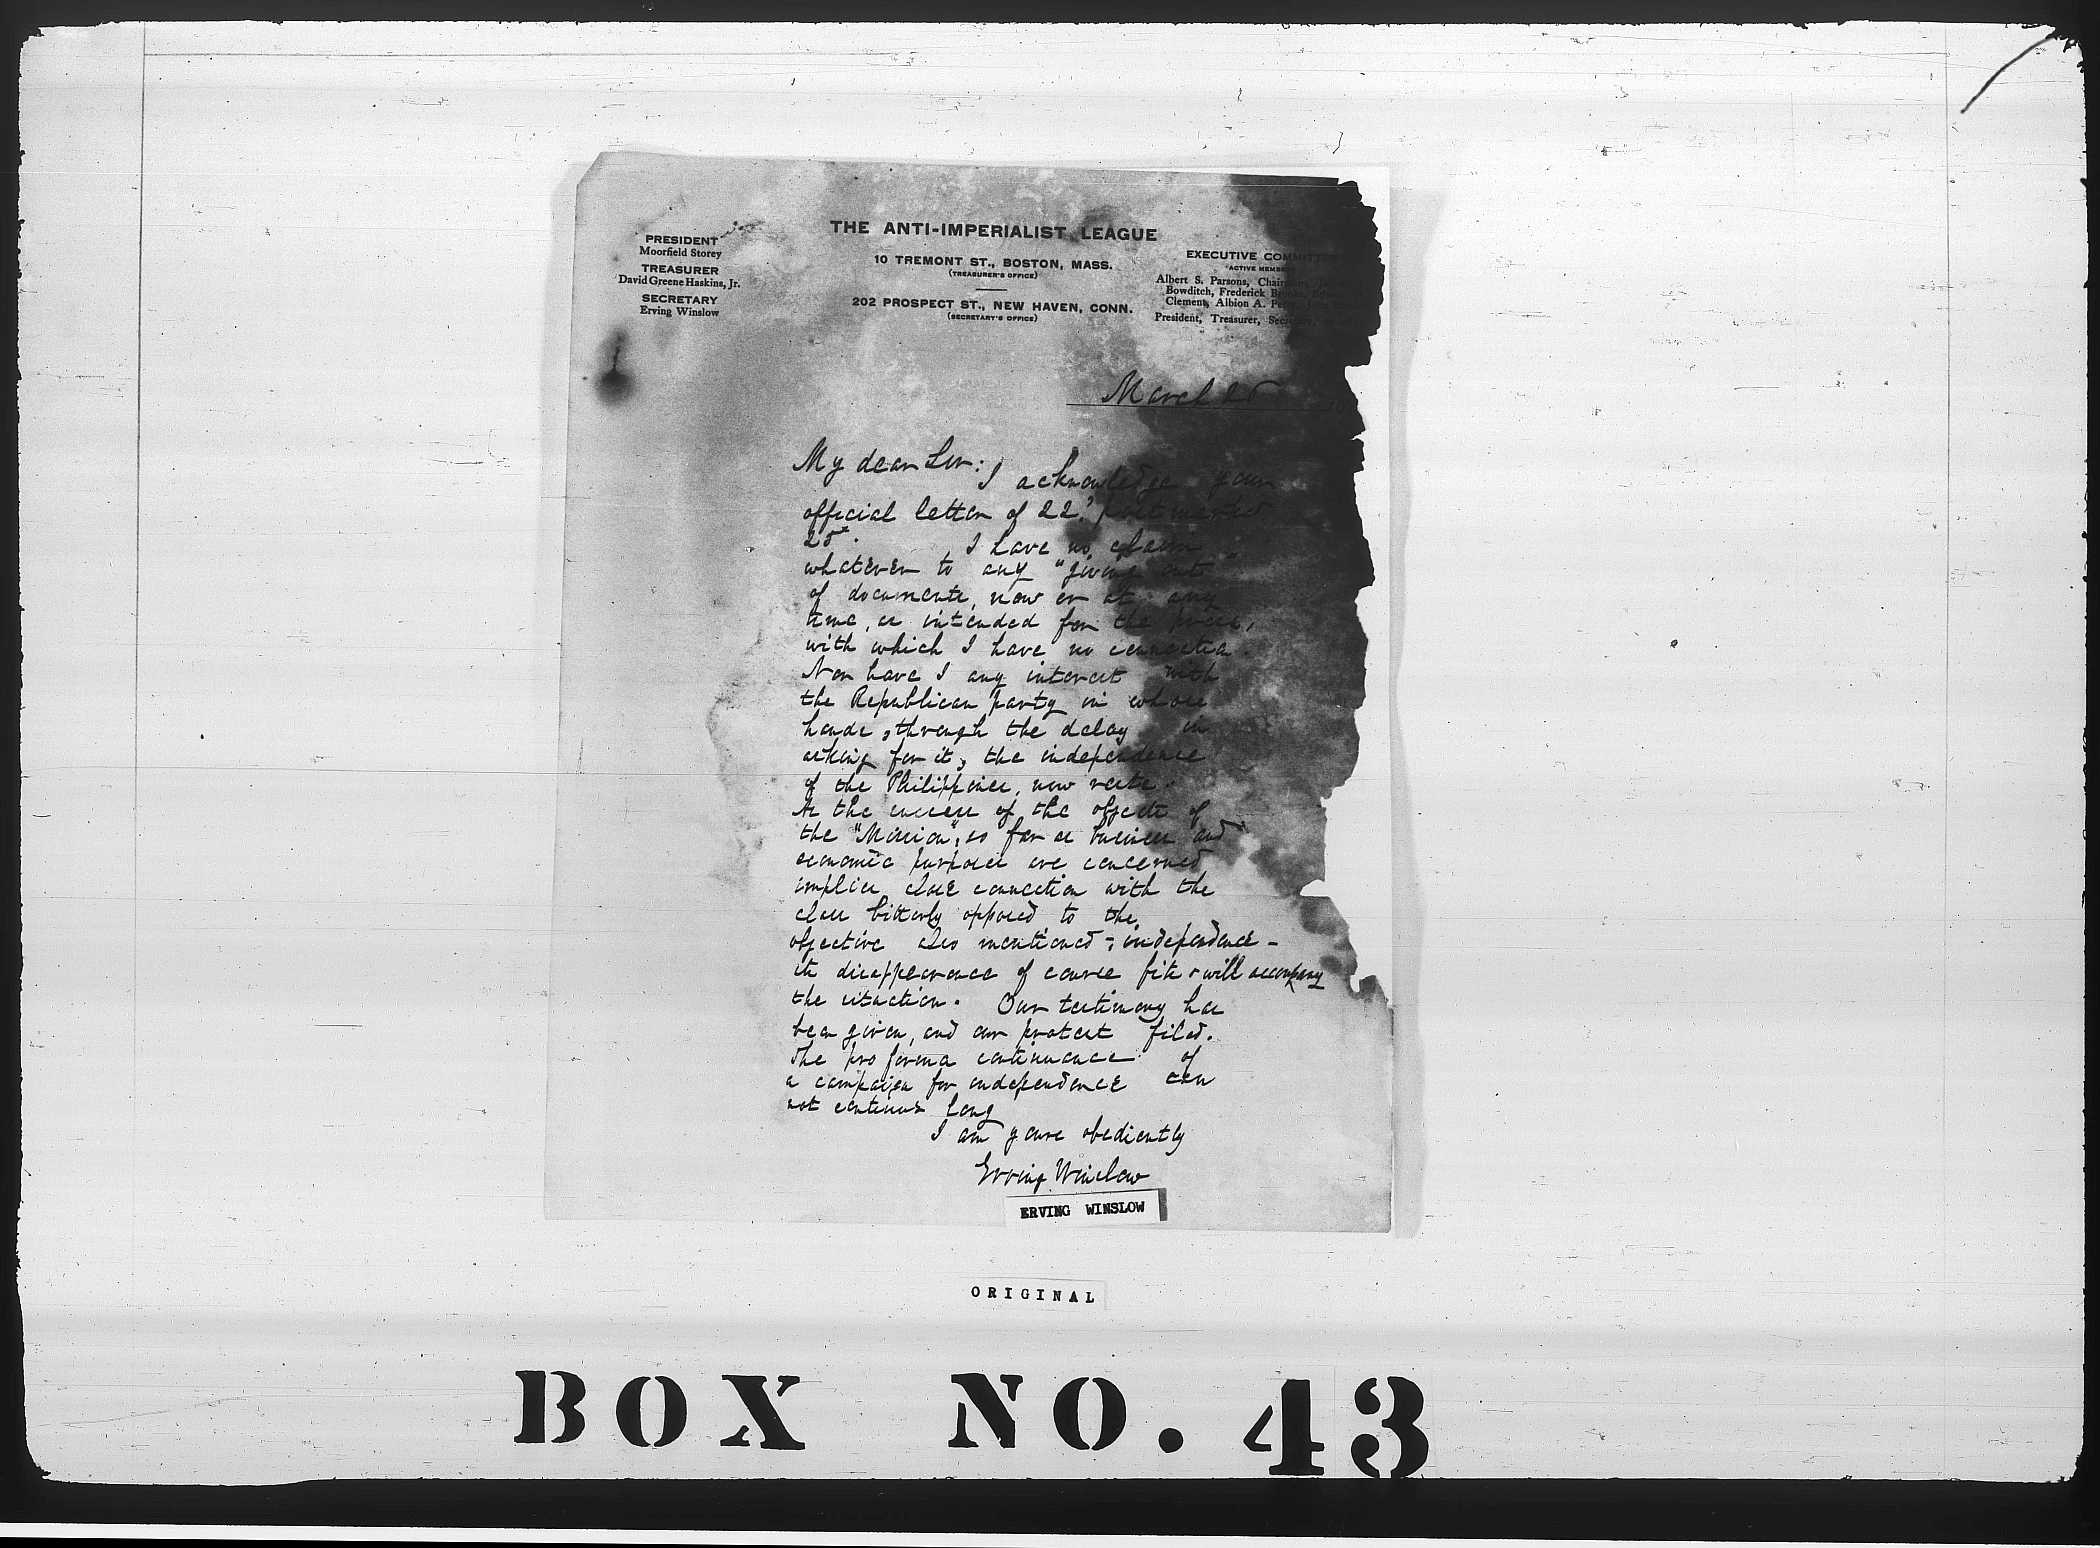 THE ANTI-IMPERIALIST LEAGUE
10 TREMONT ST., BOSTON, MASS.
(TREASURER'S OFFICE)
202 PROSPECT ST., NEW HAVEN, CONN.
(SECRETARY'S OFFICE)
PRESIDENT
Moorfield Storey
TREASURER
David Greene Haskins, Jr.
SECRETARY
Erving Winslow
EXECUTIVE COMMITTEE
ACTIVE MEMBERS
Albert S. Parsons,
Bowditch, Frederick
Clement, Albion A.
President, Treasurer,
March 25
My dear Sir:
I acknowledge your
official letter of 22d postmarked
25th. I have no claim
whatever to any "giving out"
of documents, now or at any
time, as intended for the press,
with which I have no connection.
Nor have I any interest with
the Republican party in whose
hands, through the delay in
asking for it, the independence
of the Philippines, now rests.
As the success of the objects of
the "Mission", so far as business and
economic purposes are concerned
implies close connection with the
class bitterly opposed to the
objective also mentioned - independence -
its disappearance of course fits & will accompany
the situation. Our testimony has
been given, and our protest filed.
The pro forma continuance of
a campaign for independence can
not continue long
I am yours obediently
Erving Winslow
ERVING WINSLOW
ORIGINAL
BOX NO. 43